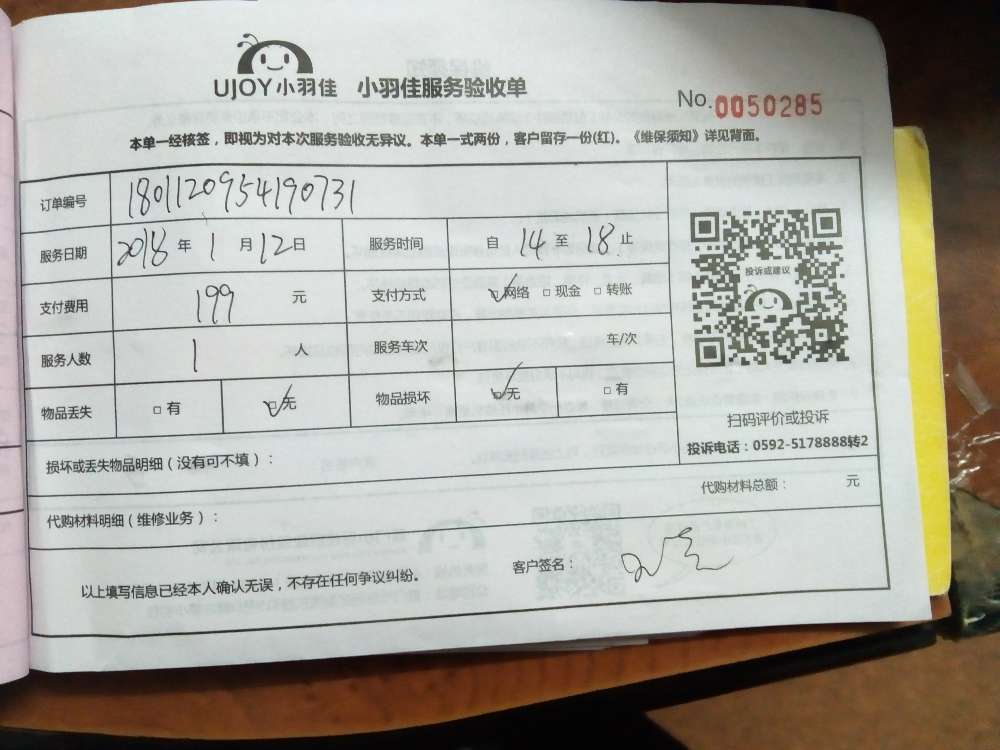 UJOY小羽佳 小羽佳服务验收单
No.0050285
本单一经核签，即视为对本次服务验收无异议。本单一式两份，客户留存一份(红)。《维保须知》详见背面。
订单编号 1801120954190731
服务日期 2018 年 1 月 12 日 服务时间 自 14 至 18 止
支付费用 199 元 支付方式 ☑网络 □现金 □转账
服务人数 1 人 服务车次 车/次
物品丢失 □有 ☑无 物品损坏 ☑无 □有
投诉或建议
扫码评价或投诉
投诉电话：0592-5178888转2
损坏或丢失物品明细（没有可不填）：
代购材料总额： 元
代购材料明细（维修业务）：
以上填写信息已经本人确认无误，不存在任何争议纠纷。
客户签名：